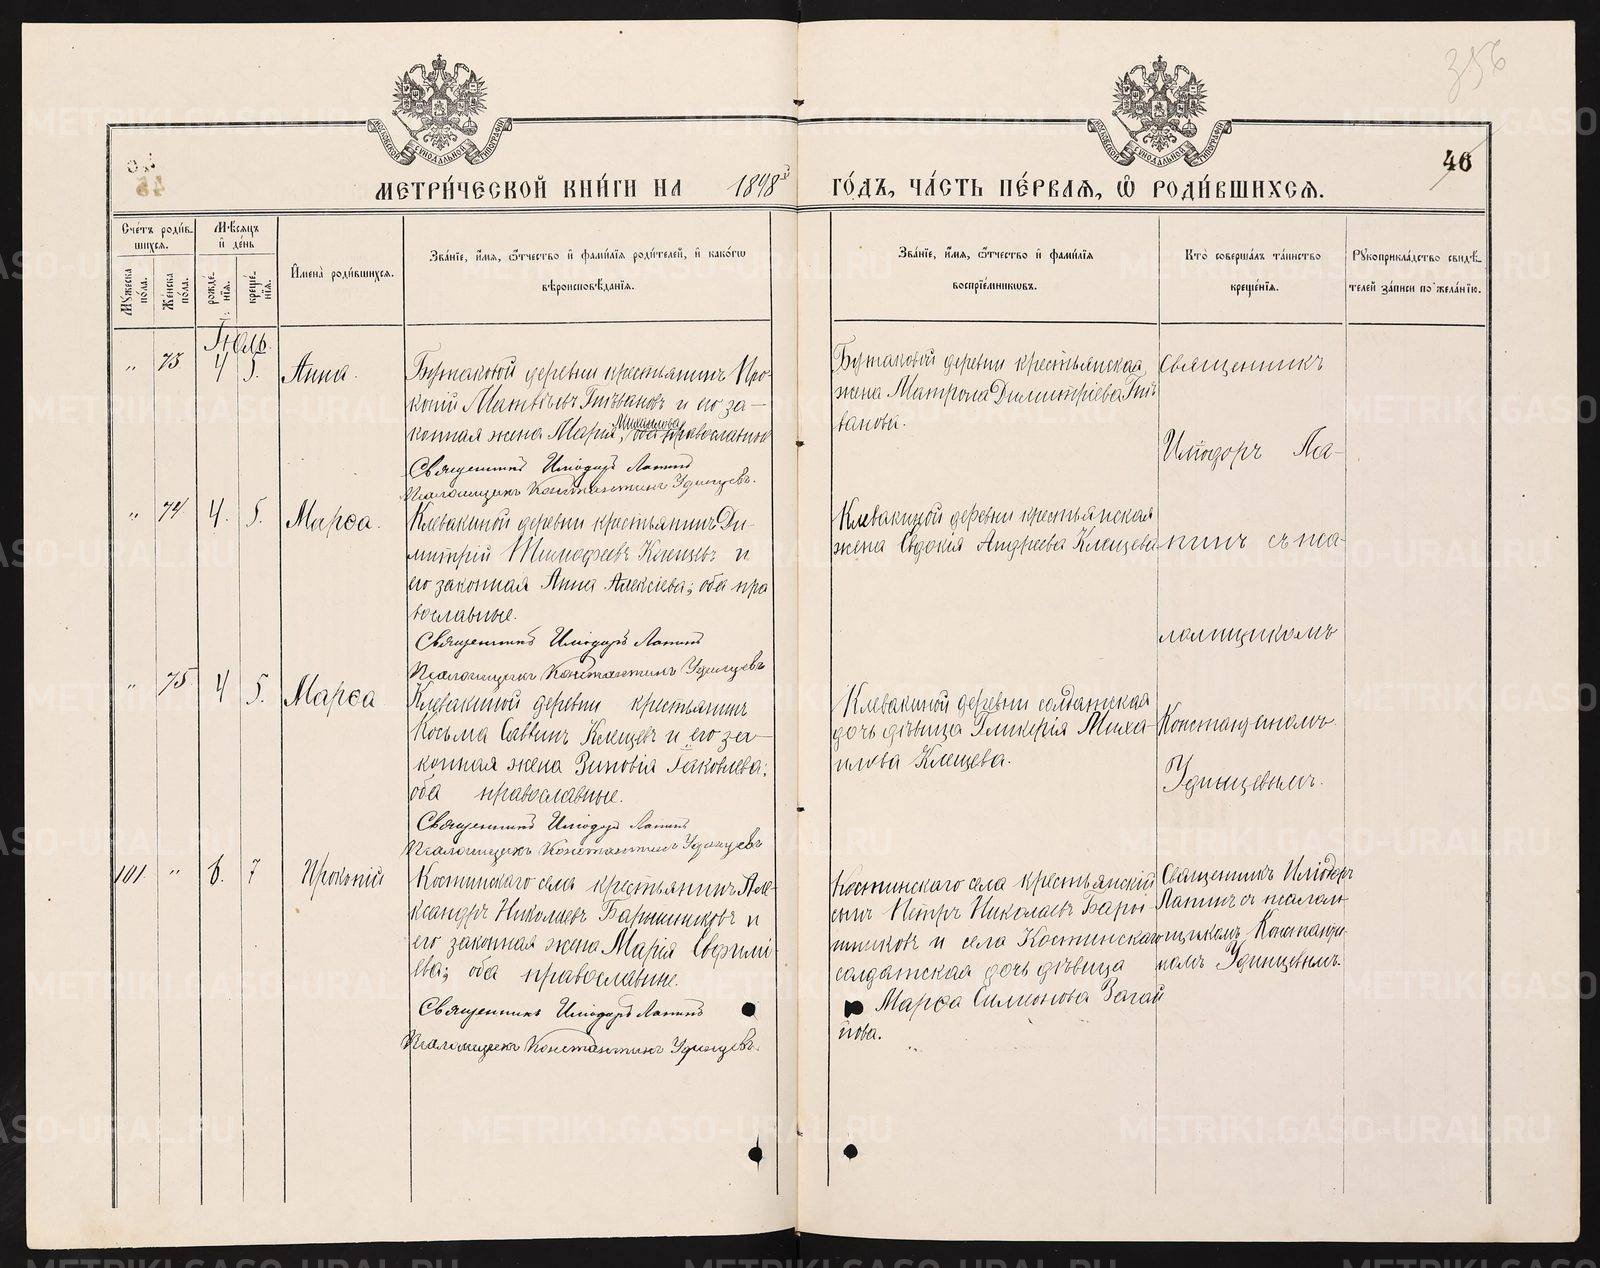 356
46
МЕТРИ́ЧЕСКОЙ КНИ́ГИ НА 1898й ГО́ДЪ, ЧА́СТЬ ПЕ́РВАѦ, Ѡ҆ РОДИ́ВШИХСѦ.
Сче́тъ роди́в-
шихсѧ.
Мѣ́сѧцъ
и҆ де́нь
Мꙋ́жеска по́ла.
Же́нска по́ла.
рожде́-нїѧ.
креще́-нїѧ.
И҆мена̀ роди́вшихсѧ.
Зва́нїе, и҆́мѧ, ѻ҆́тчество и҆ фами́лїѧ роди́телей, и҆ како́гѡ
вѣроисповѣ́данїѧ.
Зва́нїе, и҆́мѧ, ѻ҆́тчество и҆ фами́лїѧ
воспрїе́мникѡвъ.
Кто̀ соверша́лъ та́инство
креще́нїѧ.
Рꙋкоприкла́дство свидѣ́-
телей за́писи по жела́нїю.
Іюль
" 73 4 5. Анна.
Бутаковой деревни крестьянинъ Про-
копій Матвѣевъ Гпѣвановъ и его за-
конная жена Марія Михаилова, оба православные
Священникъ Иліодоръ Лапинъ
Псаломщикъ Константинъ Удинцевъ.
Бутаковой деревни крестьянская
жена Матрона Димитріева Гпѣ
ванова.
Священникъ
Иліодоръ Ла-
" 74 4. 5. Марѳа.
Клевакиной деревни крестьянинъ Ди-
митрій Тимофеевъ Клещевъ и
его законная Анна Алексіева; оба пра
вославные.
Священникъ Иліодоръ Лапинъ
Псаломщикъ Константинъ Удинцевъ
Клевакиной деревни крестьянская
жена Евдокія Андреева Клещева
пинъ съ пса-
ломщикомъ
" 75 4 5. Марѳа
Клевакиной деревни крестьянинъ
Косьма Саввинъ Клещевъ и его за-
конная жена Зиновія Іаковлева;
оба православные.
Священникъ Иліодоръ Лапинъ
Псаломщикъ Константинъ Удинцевъ
Клевакиной деревни солдатская
дочь дѣвица Гликерія Миха-
илова Клещева.
Константиномъ
Удинцевымъ.
101. " 6. 7 Прокопій
Костинскаго села крестьянинъ Але-
ксандръ Николаевъ Барышниковъ и
его законная жена Марія Евфимі-
ева; оба православные.
Священникъ Иліодоръ Лапинъ
Псаломщикъ Константинъ Удинцевъ.
Костинскаго села крестьянскій
сынъ Петръ Николаевъ Бары-
шниковъ и села Костинскаго
солдатская дочь дѣвица
Марѳа Симионова Загай
нова.
Священникъ Иліодоръ
Лапинъ съ псалом-
щикомъ Константи-
номъ Удинцевымъ.
METRIKI.GASO-URAL.RU